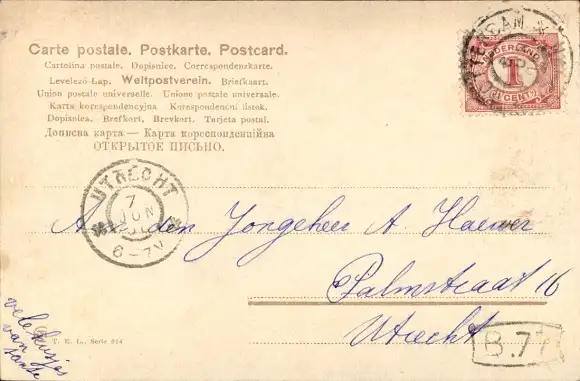 Carte postale. Postkarte. Postcard.
Cartolina postale. Dopisnice. Correspondenzkarte.
Levelező-Lap. Weltpostverein. Briefkaart.
Union postale universelle. Unione postale universale.
Karta korespondencyjna Korespondenční lístek.
Dopisnica. Brefkort, Brevkort. Tarjeta postal.
Дописна карта — Карта кореспонденційна
ОТКРЫТОЕ ПИСЬМО.
NEDERLAND
1
CENT
UTRECHT
7 JUN
6-7V
Aan den Jongeheer A
Palmstraat 16
Utrecht
vele kusjes
van
tante
T. E. L., Serie 914
B.77